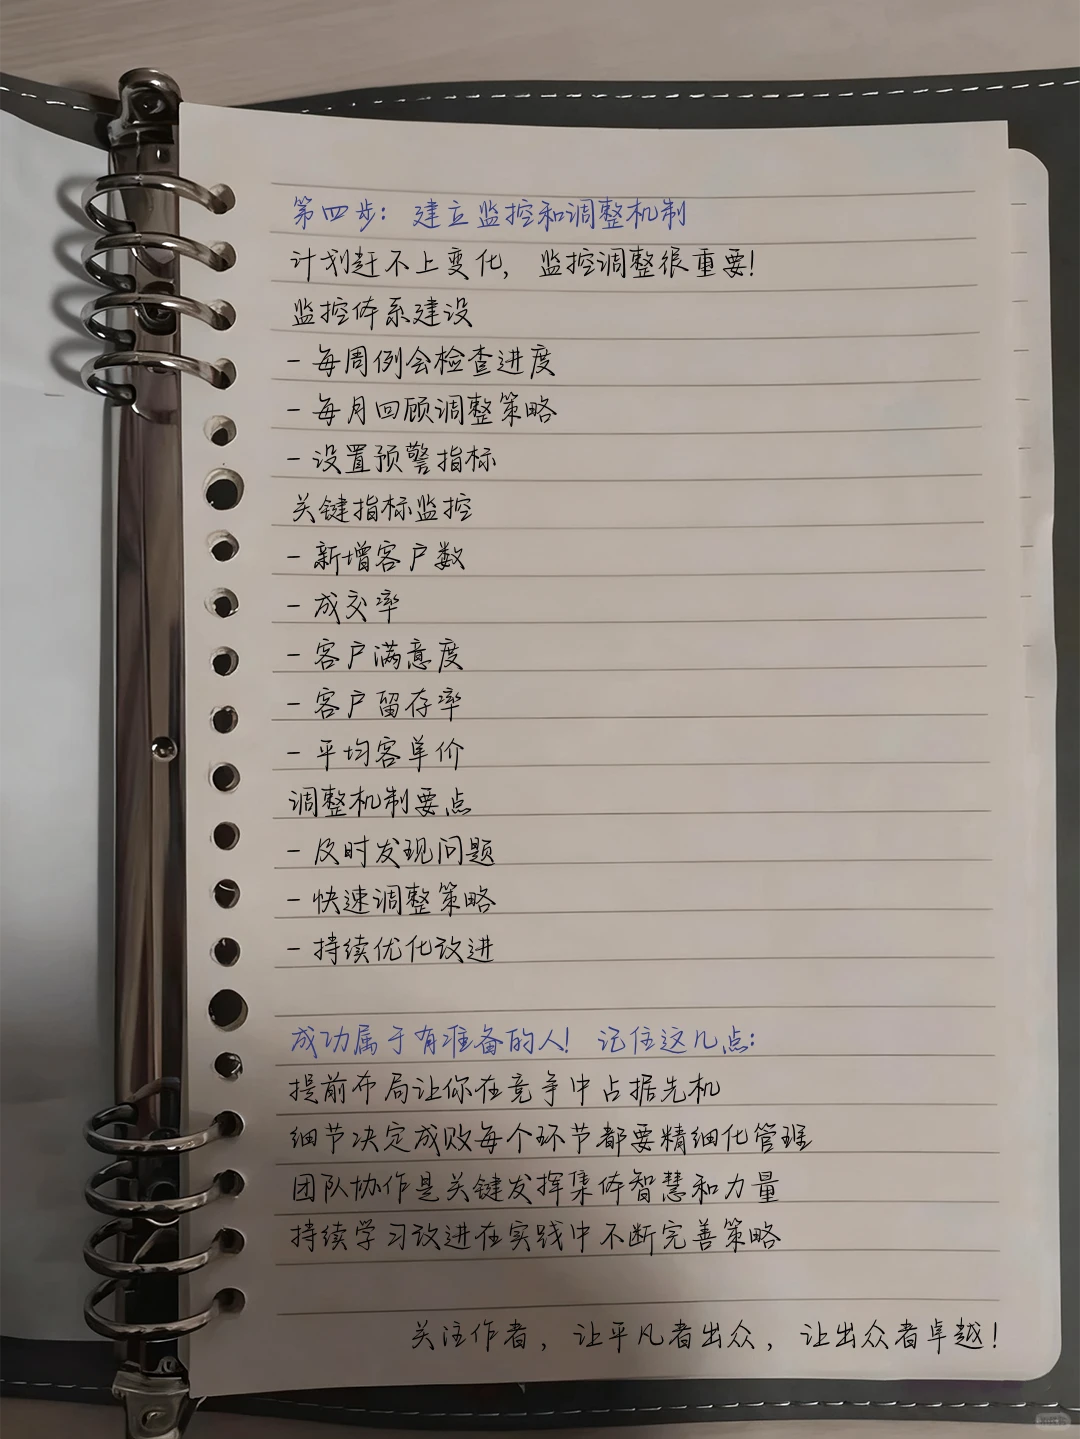 第四步：建立监控和调整机制
计划赶不上变化，监控调整很重要！
监控体系建设
- 每周例会检查进度
- 每月回顾调整策略
- 设置预警指标
关键指标监控
- 新增客户数
- 成交率
- 客户满意度
- 客户留存率
- 平均客单价
调整机制要点
- 及时发现问题
- 快速调整策略
- 持续优化改进
成功属于有准备的人！记住这几点：
提前布局让你在竞争中占据先机
细节决定成败每个环节都要精细化管理
团队协作是关键发挥集体智慧和力量
持续学习改进在实践中不断完善策略
关注作者，让平凡者出众，让出众者卓越！